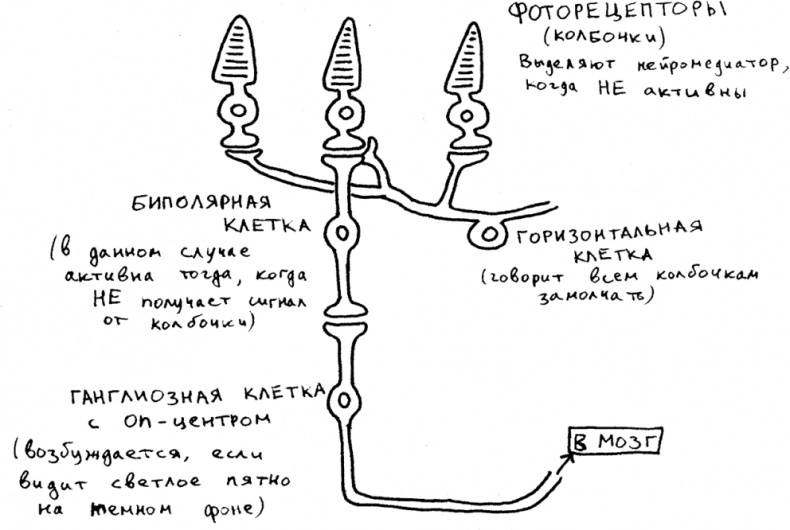 ФОТОРЕЦЕПТОРЫ
(КОЛБОЧКИ)
Выделяют нейромедиатор,
когда НЕ активны
БИПОЛЯРНАЯ
КЛЕТКА
(в данном случае
активна тогда, когда
НЕ получает сигнал
от колбочки)
ГОРИЗОНТАЛЬНАЯ
КЛЕТКА
(говорит всем колбочкам
замолчать)
ГАНГЛИОЗНАЯ КЛЕТКА
с ОП-ЦЕНТРОМ
(возбуждается, если
видит светлое пятно
на темном фоне)
В МОЗГ